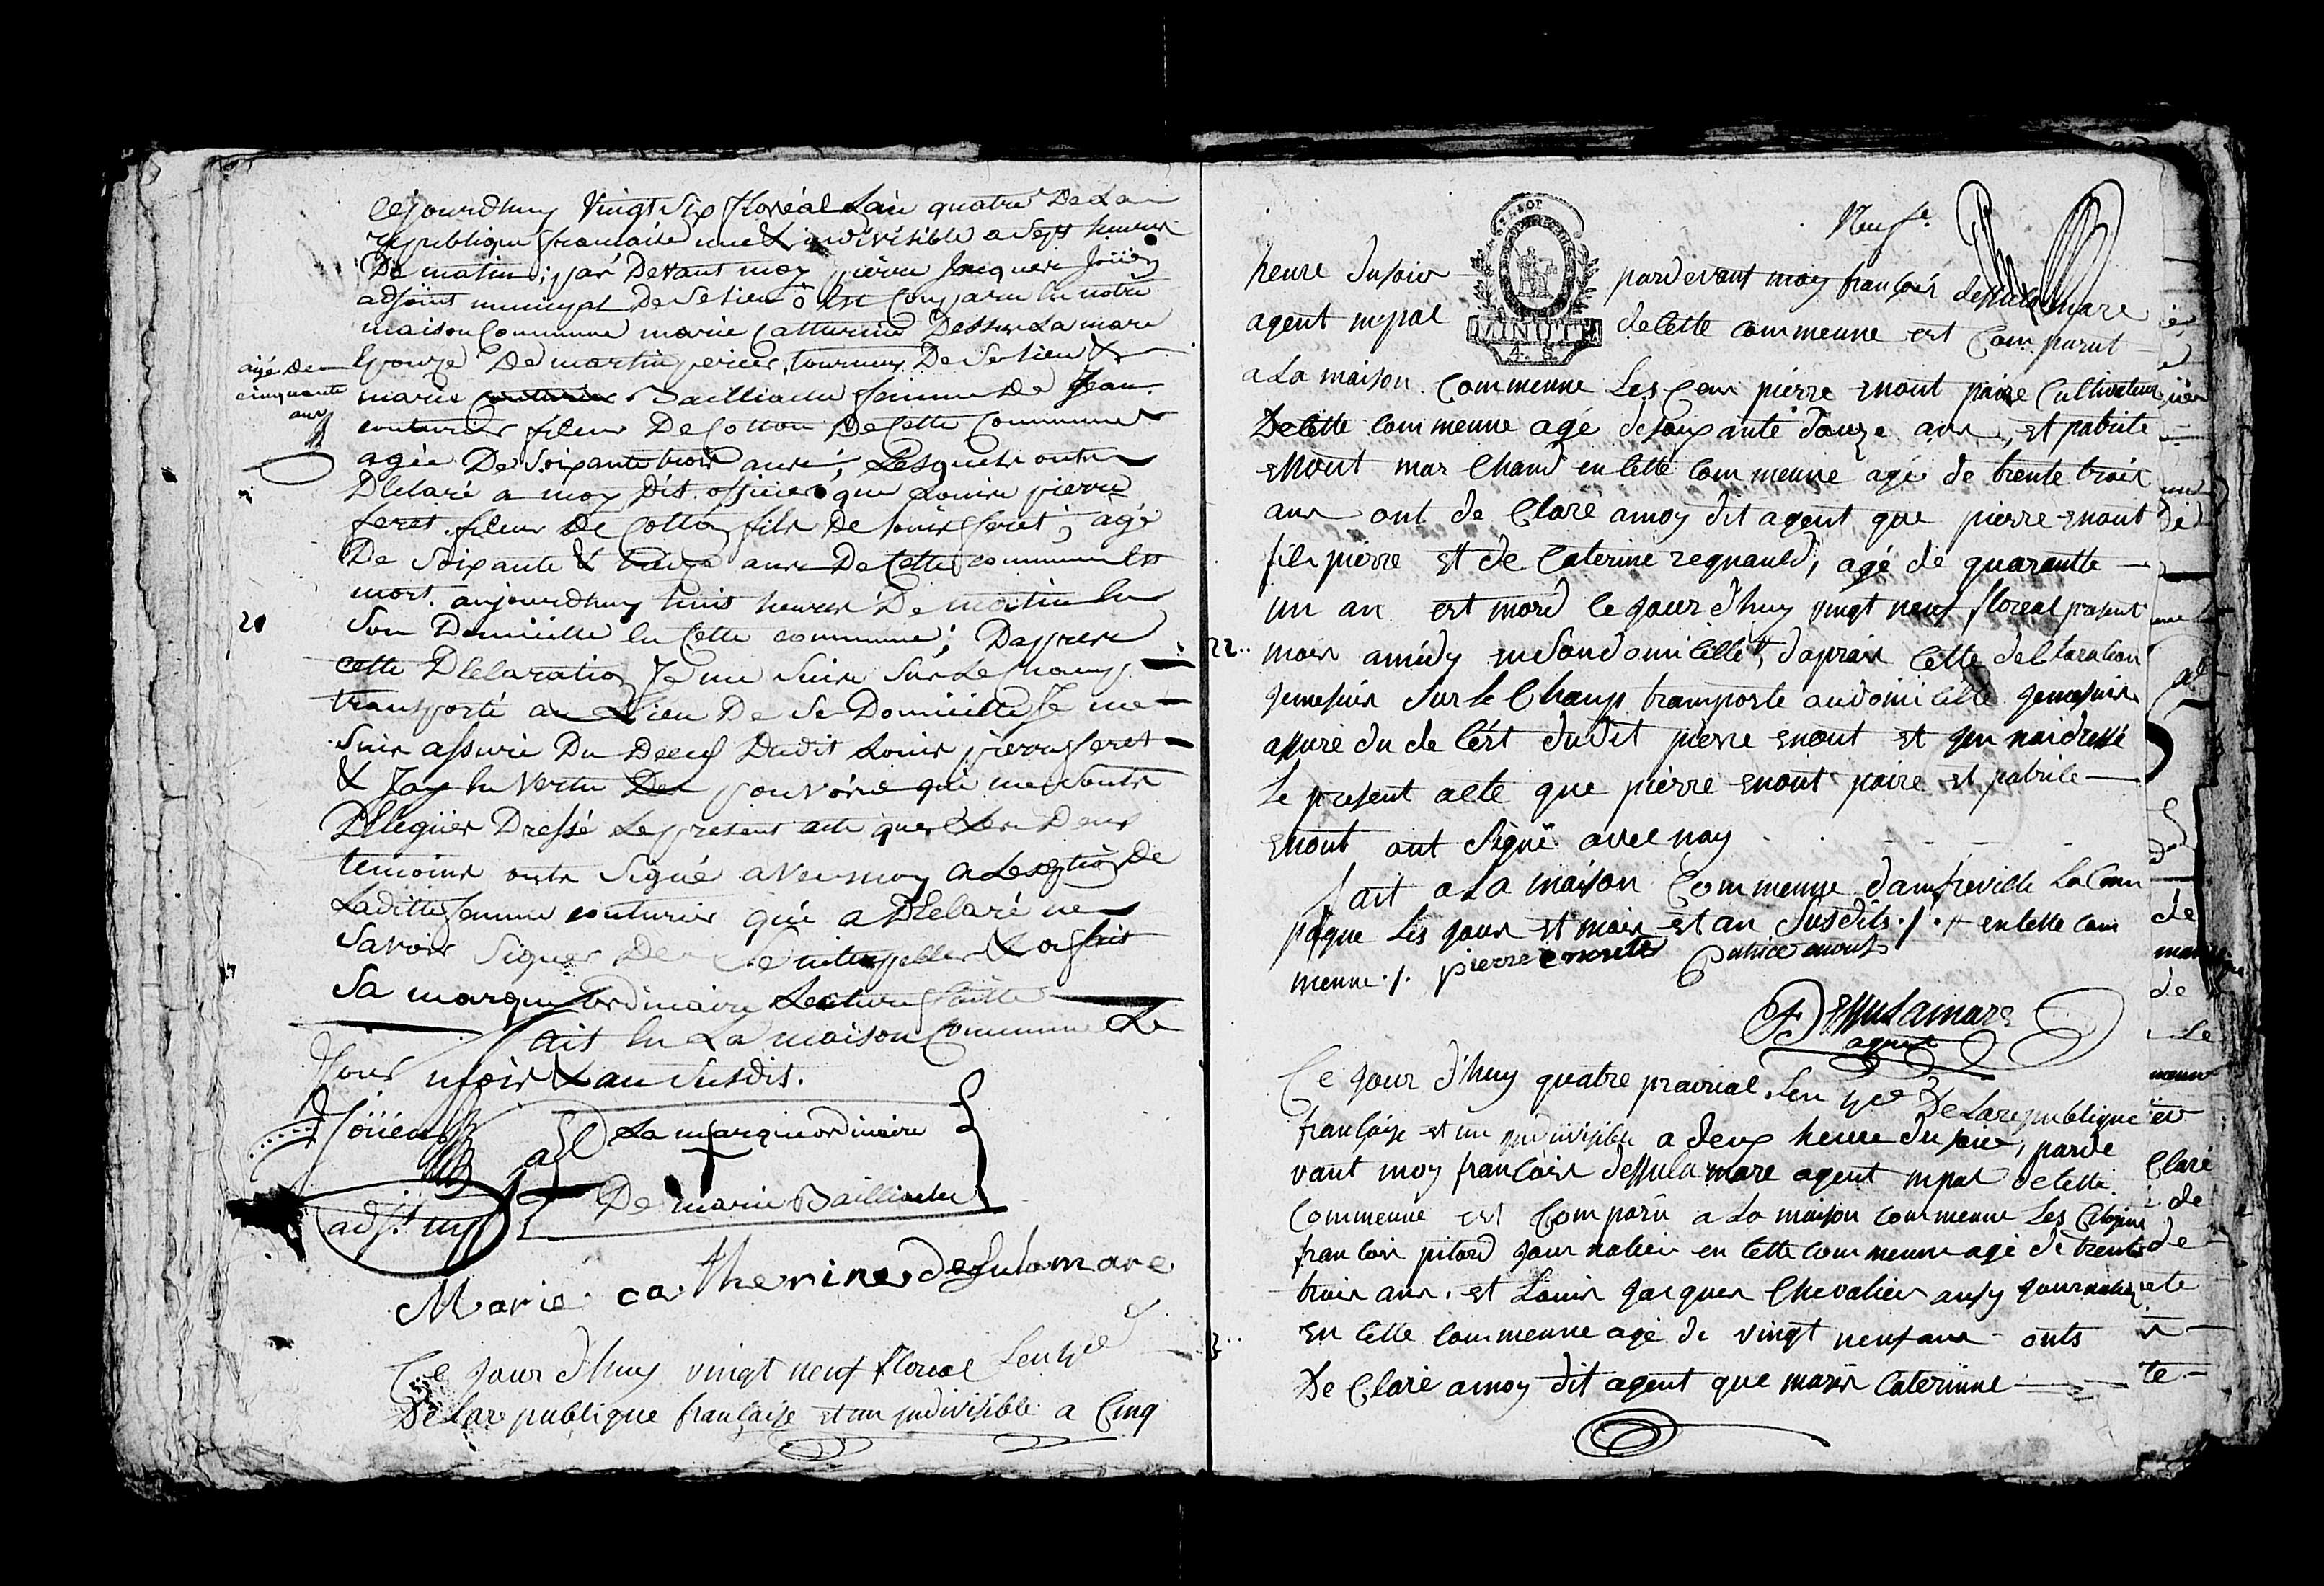 Cejourdhuy Vingt Six floréal Lan quatre De La
republique francaise une & indivisible a Sept heures
Du matin; par Devant moy pierre Jacques Joüen
adjoint municipal De Se lieu Est Comparu En notre
maison Commune marie Catherine Dessulamare
Epouze De martin tourneur De Se lieu &
agé De cinquante ans
marie Bailliache femme De Jean
couturier fileur De Cotton De Cette Commune
agée De Soixante trois ans; Lesquels onts
Declaré a moy Dit officier que Louis pierre
feret fileur De Cotton fils De Louis feret; agé
De Soixante & ans De Cette commune Est
mort aujourdhuy huit heures De matin En
20
Son Domicille En Cette commune; Dapres
cette Declaration Je me Suis Sur Le Champ
transporté au Lieu De Se Domicille Je me
Suis assuré Du Deces Dudit Louis pierre feret
& Jay En Vertu Des pouvoirs qui me Sonts
Delegués Dressé Le present acte que Les Deux
temoins onts Signé avec moy a Lexeption De
Laditte femme couturier qui a Declaré ne
Savoir Signer De Ce interpeller & a fait
Sa marque ordinaire Lecture faitte
fait En La maison Commune Le
Jour mois & an Susdis.
Joüen
adjt mpl
La marque ordinaire
De marie Bailliache
Marie catherine desulamare
Ce jour d'huy vingt neuf floreal Len 4e
De La republique française et un indivisible a Cinq
Neuf.e
heure du soir pardevant moy françois dessulamare
agent mpal de Cette commenne est Comparut
a La maison Commenne Les Cen pierre enout paire Cultivateur
De Cette commenne agé de soixante douze ans, et patrice
enout marChand en Cette commenne agé de trente trois
ans ont de Claré amoy dit agent que pierre enout
fils pierre et de Caterine regnauld, agé de quarantte
un an est mord le jour d'huy vingt neuf floreal present
22..
mois amidy en son domicille, daprais Cette declaration
jemesuis sur le Champ transporte audomicille jemesuis
assuré du decest dudit pierre enout et jen nai dressé
Le present acte que pierre enout paire et patrice
enout ont Signé avec moy
fait a La maison Commenne damfreville La Cam
pagne Les jour et mois et an Susdits ./. + en Cette com
menne ./. pierre enoult Patrice enoult
F Dessulamare
agent
Ce jour d'huy quatre prairial Len 4e De La republique
française et un indivisible a deux heure du soir, parde
vant moy françois dessulamare agent mpal de Cette
Commenne est Comparu a La maison commenne Les Citoyens
françois pitard journalier en Cette commenne agé de trente
trois ans et Louis jacques Chevalier ausy journalier
En Cette commenne agé de vingt neuf ans onts
De Claré amoy dit agent que marie Caterinne